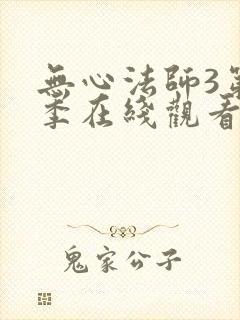 無心法師3第
季在綫觀看
鬼家公子